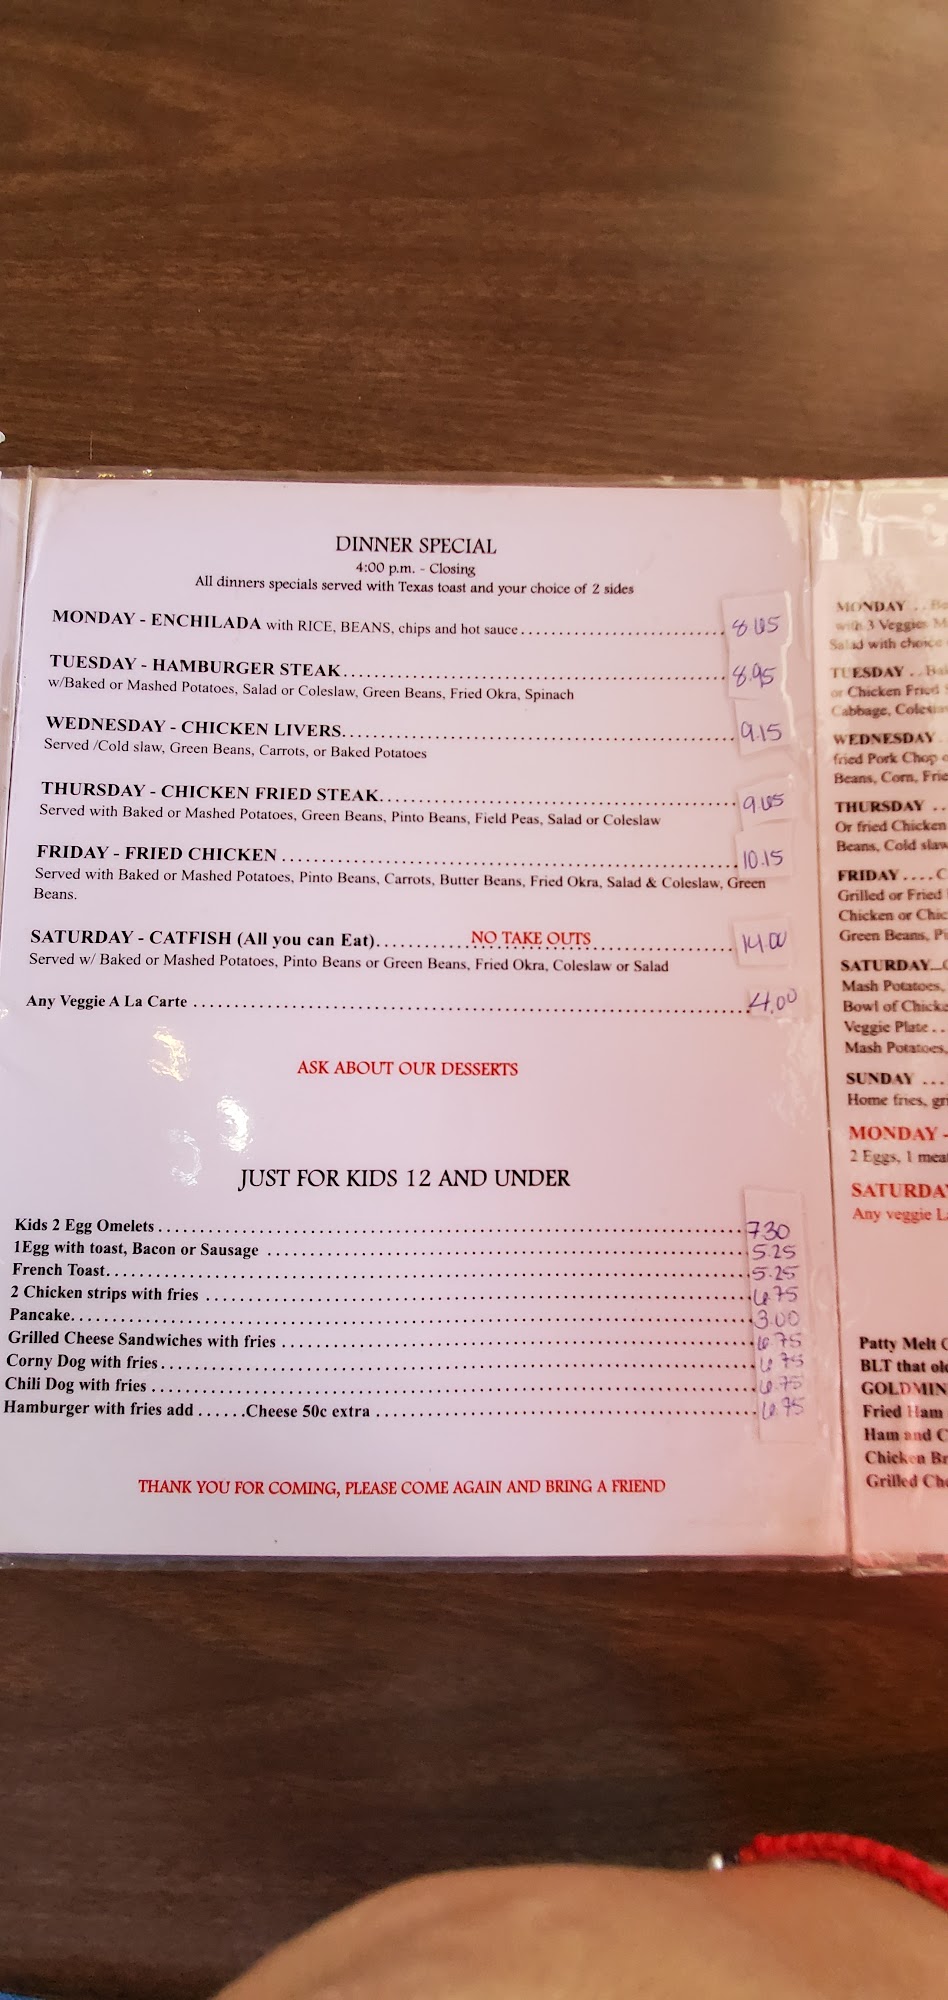 DINNER SPECIAL
4:00 p.m. - Closing
All dinners specials served with Texas toast and your choice of 2 sides
MONDAY - ENCHILADA with RICE, BEANS, chips and hot sauce........................ 8.65
TUESDAY - HAMBURGER STEAK........................ 8.95
w/Baked or Mashed Potatoes, Salad or Coleslaw, Green Beans, Fried Okra, Spinach
WEDNESDAY - CHICKEN LIVERS........................ 9.15
Served /Cold slaw, Green Beans, Carrots, or Baked Potatoes
THURSDAY - CHICKEN FRIED STEAK........................ 9.65
Served with Baked or Mashed Potatoes, Green Beans, Pinto Beans, Field Peas, Salad or Coleslaw
FRIDAY - FRIED CHICKEN ........................ 10.15
Served with Baked or Mashed Potatoes, Pinto Beans, Carrots, Butter Beans, Fried Okra, Salad & Coleslaw, Green
Beans.
SATURDAY - CATFISH (All you can Eat)............NO TAKE OUTS............ 14.00
Served w/ Baked or Mashed Potatoes, Pinto Beans or Green Beans, Fried Okra, Coleslaw or Salad
Any Veggie A La Carte ........................ 4.00
ASK ABOUT OUR DESSERTS
JUST FOR KIDS 12 AND UNDER
Kids 2 Egg Omelets ........................ 7.30
1Egg with toast, Bacon or Sausage ........................ 5.25
French Toast........................ 5.25
2 Chicken strips with fries ........................ 6.75
Pancake........................ 3.00
Grilled Cheese Sandwiches with fries ........................ 6.75
Corny Dog with fries........................ 6.75
Chili Dog with fries ........................ 6.75
Hamburger with fries add ......Cheese 50c extra ........................ 6.75
THANK YOU FOR COMING, PLEASE COME AGAIN AND BRING A FRIEND
MONDAY . .
with 3 Veggies
Salad with choice
TUESDAY . .
or Chicken Fried
Cabbage,
WEDNESDAY .
fried Pork Chop
Beans, Corn,
THURSDAY . .
Or fried Chicken
Beans, Cold slaw
FRIDAY . . . .
Grilled or Fried
Chicken or
Green Beans,
SATURDAY...
Mash Potatoes,
Bowl of
Veggie Plate . .
Mash Potatoes,
SUNDAY . . .
Home fries,
MONDAY -
2 Eggs, 1
SATURDAY
Any veggie
Patty Melt
BLT that
Fried Ham
Ham and
Chicken
Grilled